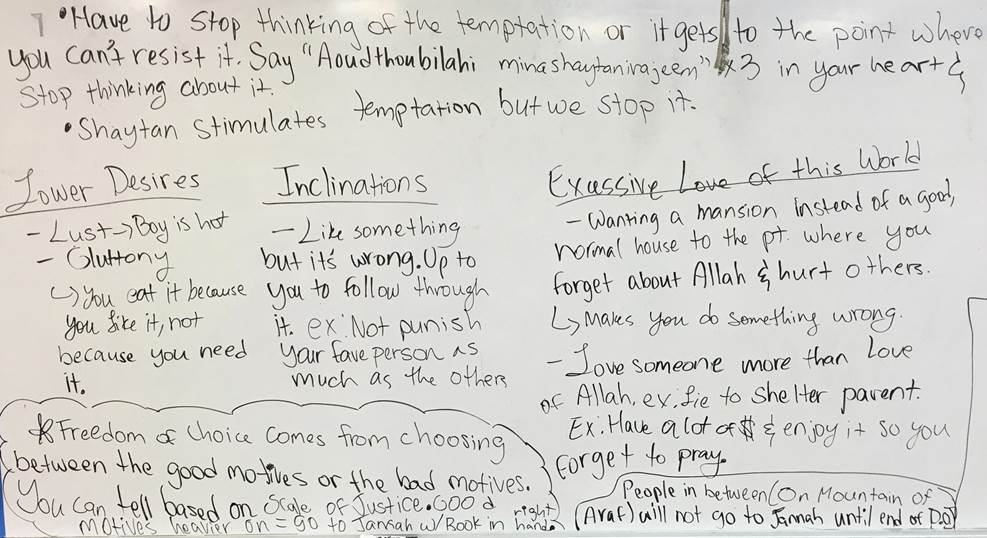 • Have to stop thinking of the temptation or it gets to the point where
you can't resist it. Say "Aoudthoubilahi minashaytanirajeem" x3 in your heart &
stop thinking about it.
• Shaytan stimulates temptation but we stop it.
Lower Desires
- Lust → Boy is hot
- Gluttony
↳ you eat it because
you like it, not
because you need
it.
Inclinations
- Like something
but it's wrong. Up to
you to follow through
it. ex: Not punish
your fave person as
much as the others
Exessive Love of this World
- Wanting a mansion instead of a good,
normal house to the pt. where you
forget about Allah & hurt others.
↳ Makes you do something wrong.
- Love someone more than love
of Allah, ex. lie to shelter parent.
Ex: Have a lot of $ & enjoy it so you
forget to pray.
* Freedom of choice comes from choosing
between the good motives or the bad motives.
You can tell based on Scale of Justice. Good
motives heavier on = go to Jannah w/ Book in right hand.
People in between (On Mountain of
Araf) will not go to Jannah until end of DOJ